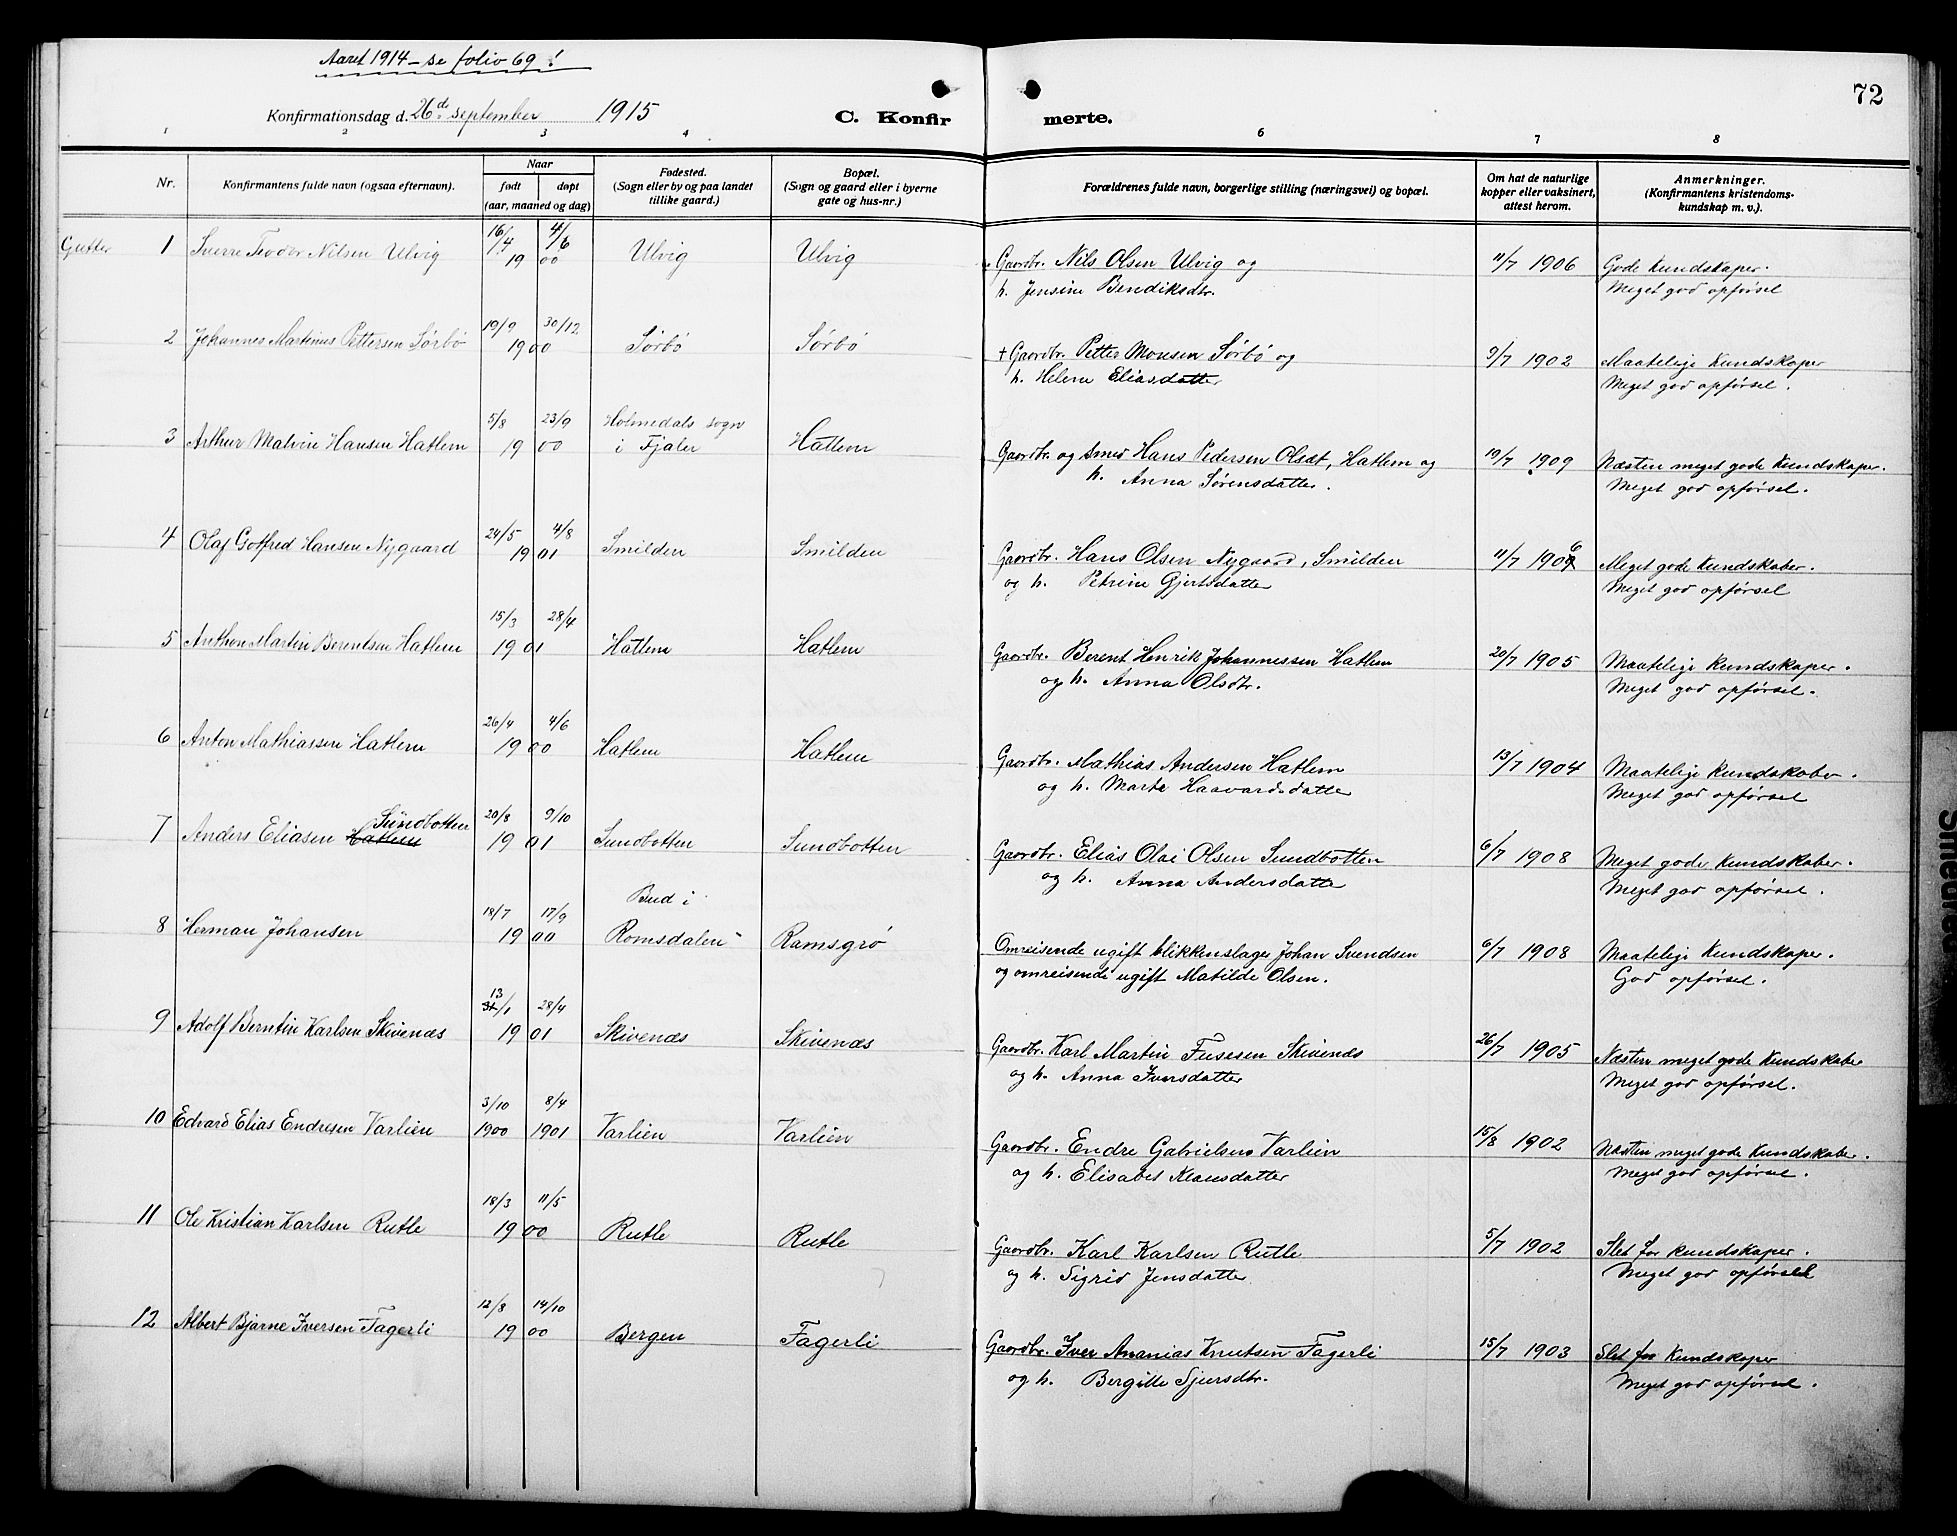 Aaret 1914 – se folio 69!
72
Konfirmationsdag d. 26d. september 1915
C. Konfirmerte.
1 2 3 4 6 7 8
Nr.
Konfirmantens fulde navn (ogsaa efternavn).
Naar
født døpt
(aar, maaned og dag)
Fødested.
(Sogn eller by og paa landet
tillike gaard.)
Bopæl.
(Sogn og gaard eller i byerne
gate og hus-nr.)
Forældrenes fulde navn, borgerlige stilling (næringsvei) og bopæl.
Om hat de naturlige
kopper eller vaksinert,
attest herom.
Anmerkninger.
(Konfirmantens kristendoms-
kundskap m. v.).
Gutter 1 Sverre Teodor Nilsen Ulvig 16/4 4/6 1900 Ulvig Ulvig Gaardbr. Nils Olsen Ulvig og 11/7 1906 Gode Kundskaper.
h. Jensine Bendiksdtr. Meget god opførsel
2 Johannes Martinus Pettersen Sørbø 19/9 30/12 1900 Sørbø Sørbø + Gaardbr. Petter Monsen Sørbø og 9/7 1902 Maatelige Kundskaper
h. Helene Eliasdatter Meget god opførsel.
3 Arthur Malvin Hansen Hatlem 5/8 23/9 1900 Holmedals sogn
i Fjaler Hatlem Gaardbr. og smed Hans Pedersen Olsæt, Hatlem og 19/7 1909 Næsten meget gode Kundskaper.
h. Anna Sørensdatter. Meget god opførsel.
4 Olaf Gotfred Hansen Nygaard 24/5 4/8 1901 Smilden Smilden Gaardbr. Hans Olsen Nygaard, Smilden 11/7 1906 Meget gode Kundskaber.
og h. Petrine Gjertsdatter Meget god opførsel
5 Anthon Martin Berentsen Hatlem 15/3 28/4 1901 Hatlem Hatlem Gaardbr. Berent Henrik Johannessen Hatlem 20/7 1905 Maatelige Kundskaper.
og h. Anna Olsdtr. Meget god opførsel.
6 Anton Mathiassen Hatlem 26/4 4/6 1900 Hatlem Hatlem Gaardbr. Mathias Andersen Hatlem 13/7 1904 Maatelige Kundskaber.
og h. Marta Haavardsdatter Meget god opførsel
7 Anders Eliasen Hatlem Sundbotten 20/8 9/10 1901 Sundbotten Sundbotten Gaardbr. Elias Olai Olsen Sundbotten 6/7 1908 Meget gode Kundskaber.
og h. Anna Andersdatter Meget god opførsel.
8 Herman Johansen 18/7 17/9 1900 Bud i
Romsdalen Ramsgrø Omreisende ugift blikkenslager Johan Svendsen 6/7 1908 Maatelige Kundskaper.
og omreisende ugift Matilde Olsen. God opførsel.
9 Adolf Berntin Karlsen Skivenæs 13/1 28/4 1901 Skivenæs Skivenæs Gaardbr. Karl Martin Skivenæs 26/7 1905 Næsten meget gode Kundskaber
og h. Anna Iversdatter Meget god opførsel.
10 Edvard Elias Endresen Varlien 3/10 1900 8/4 1901 Varlien Varlien Gaardbr. Endre Gabrielsen Varlien 15/8 1902 Næsten meget gode Kundskaber.
og h. Elisabet Klausdatter Meget god opførsel.
11 Ole Kristian Karlsen Rutle 18/3 11/5 1900 Rutle Rutle Gaardbr. Karl Karlsen Rutle 5/7 1902 Slet for kundskaper.
og h. Sigrid Jensdatter Meget god opførsel
12 Albert Bjarne Iversen Fagerli 12/8 14/10 1900 Bergen Fagerli Gaardbr. Iver Ananias Knutsen Fagerli 15/7 1903 Slet for Kundskaper
og h. Bergitte Sjursdtr. Meget god opførsel.